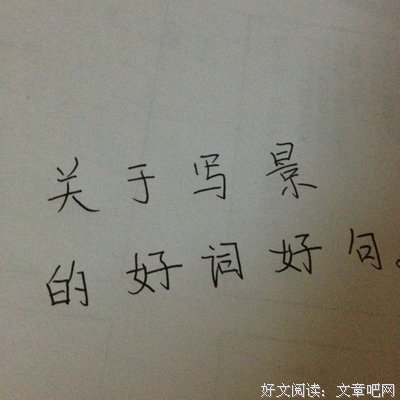 关于写景
的好词好句。
好文阅读：文章吧网